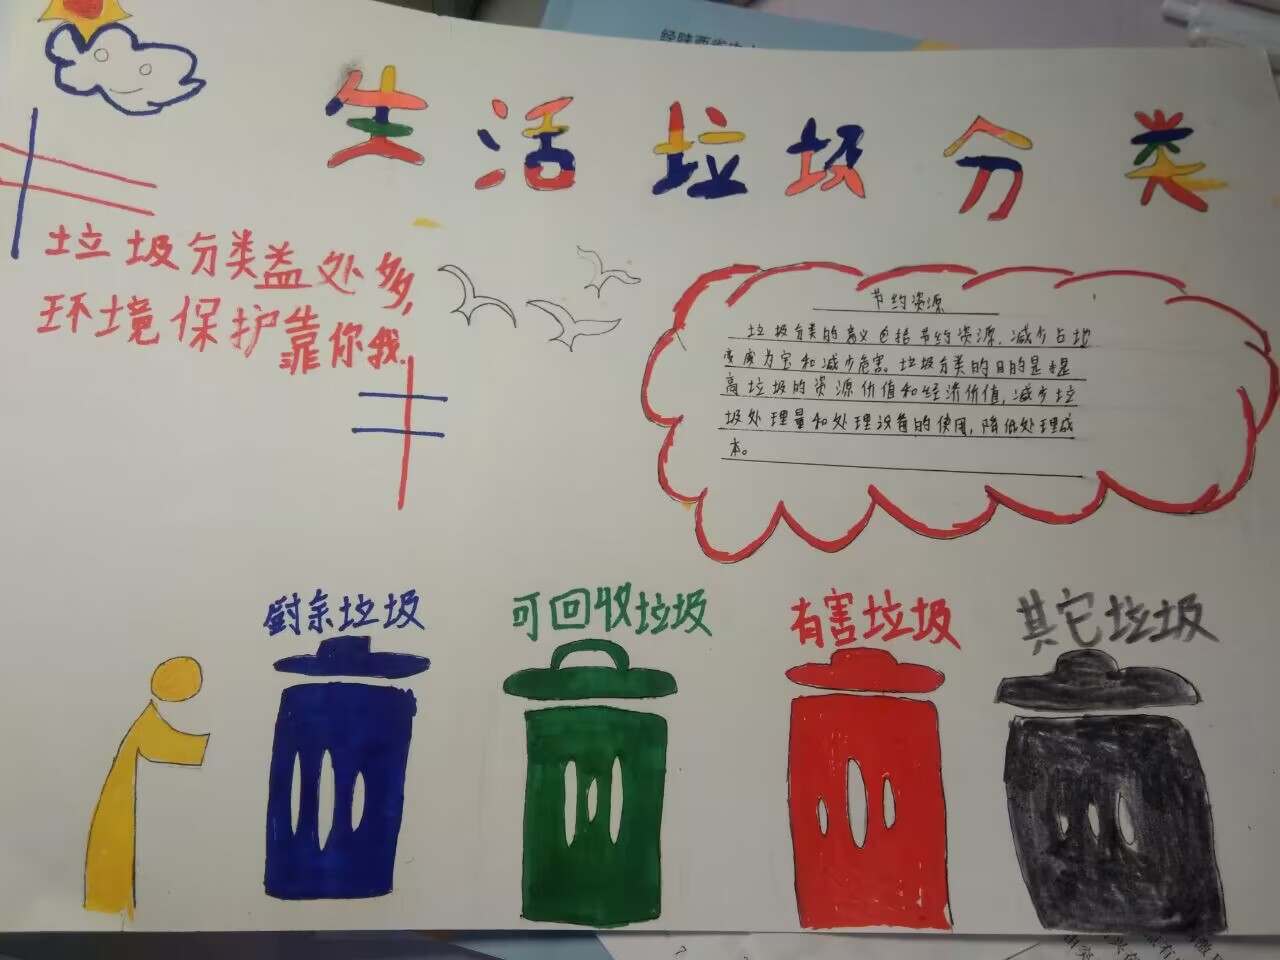 生活垃圾分类
垃圾分类益处多,
环境保护靠你我.
节约资源
垃圾分类的意义包括节约资源、减少占地
变废为宝和减少危害。垃圾分类的目的是提
高垃圾的资源价值和经济价值,减少垃
圾处理量和处理设备的使用,降低处理成
本。
厨余垃圾
可回收垃圾
有害垃圾
其它垃圾